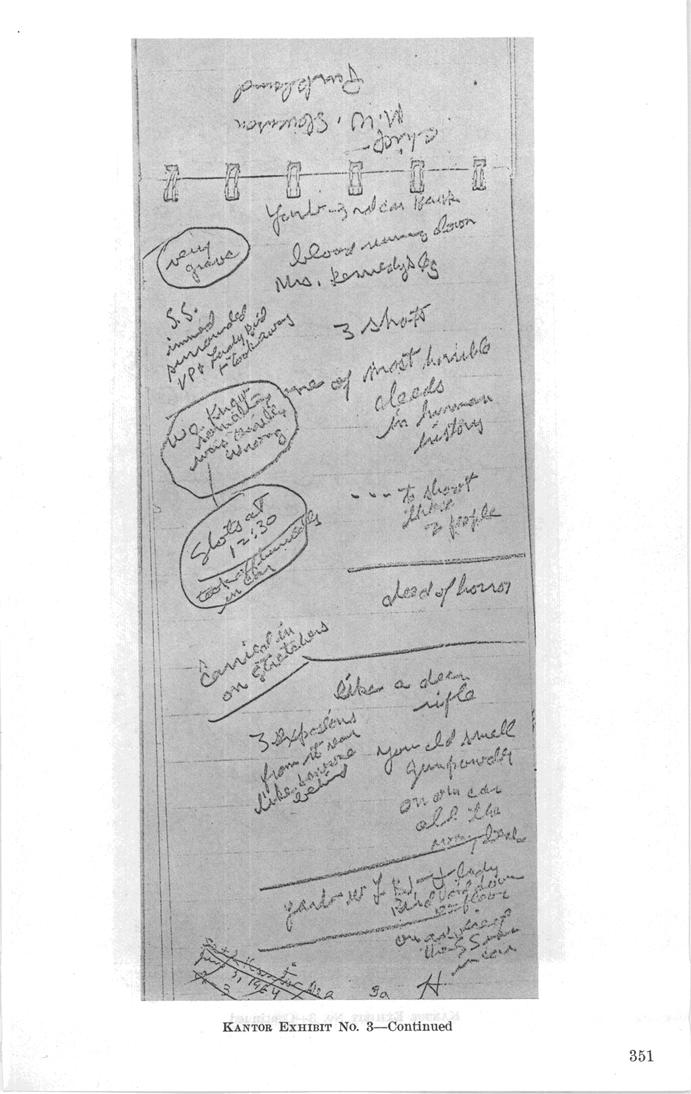 Parkland
M.W. Stevenson
chief—
Yarb—3rd car back
blood running down
Mrs. Kennedy's leg
very
grave
S.S.
immed
surrounded
VP & Lady Bird
& took away
3 shots
one of most horrible
deeds
in human
history
We knew
something
was terribly
wrong
--- to shoot
these
2 people
Shots at
12:30
took off
in car
deed of horror
Carried in
on stretchers
like a deer
rifle
3 explosions
from it rear
like someone
behind
you cld smell
gunpowder
on our car
all the
way
Yarb w LBJ & Lady
Bird
floor
on
in car
June 3, 1964
3a
H
KANTOR EXHIBIT No. 3—Continued
351